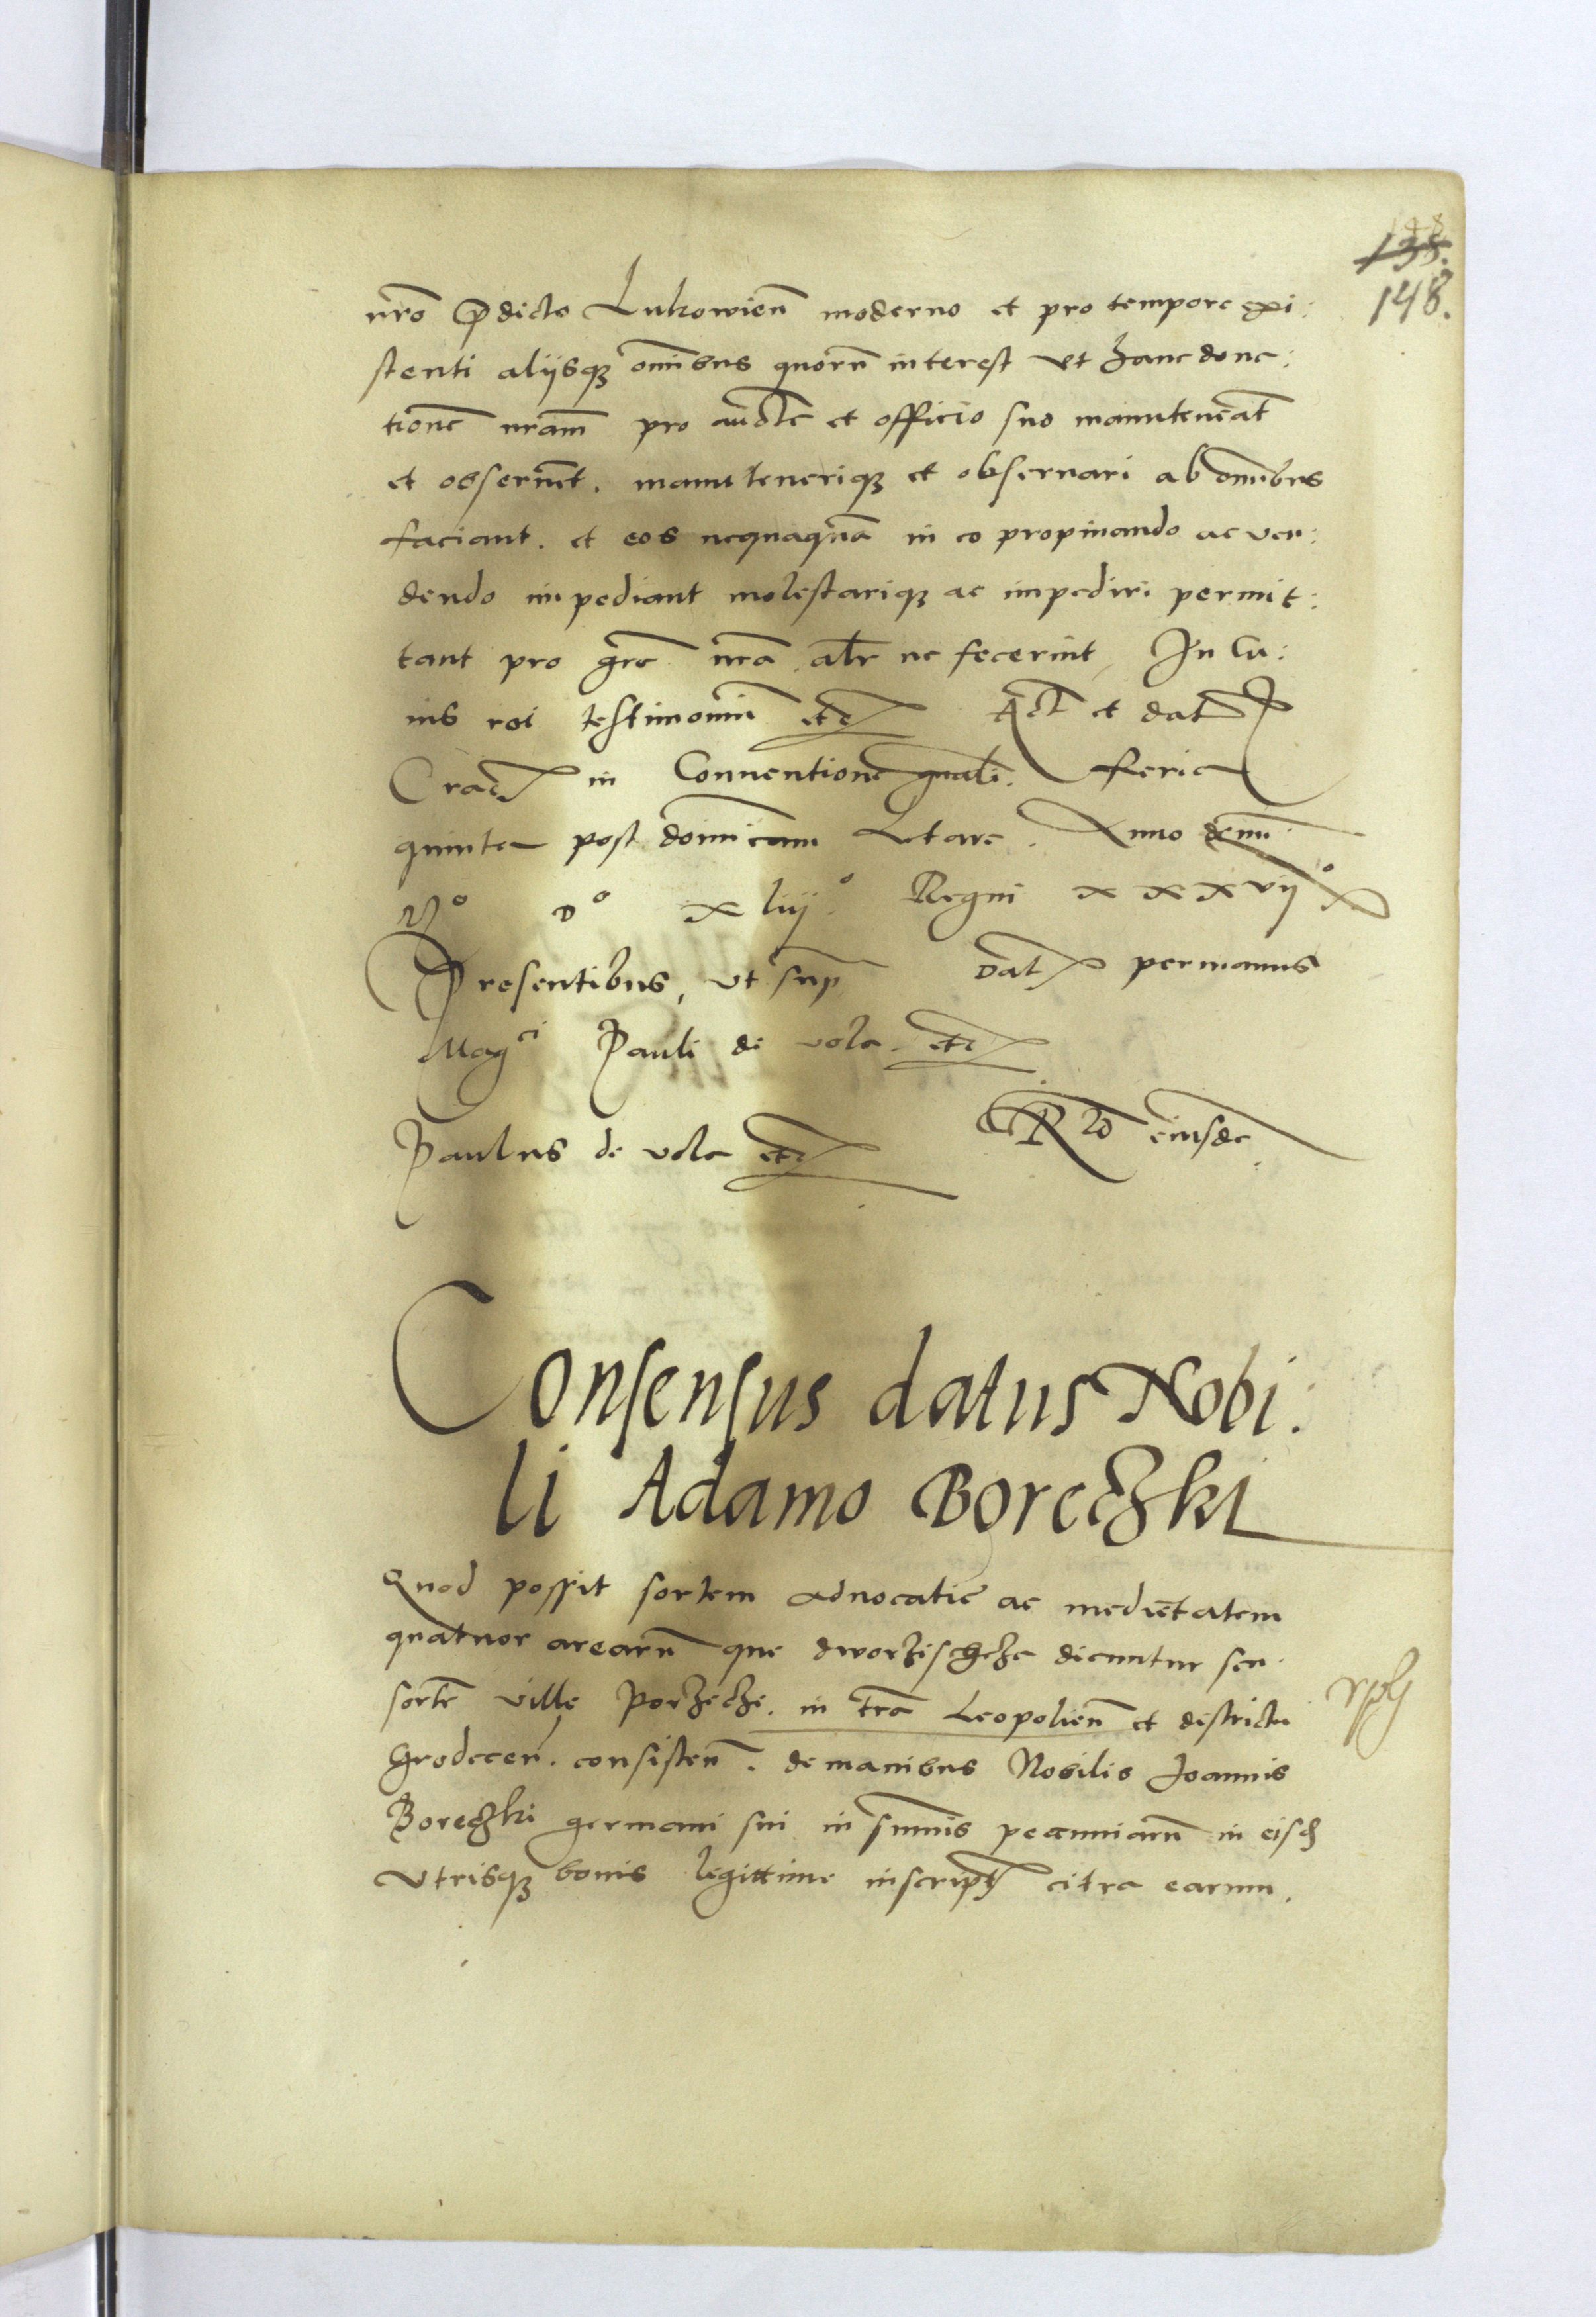 135.
148.
nr̄o p̄dicto Lukowien̄ moderno et pro tempore exi:
stenti aliisqꝫ om̄ibus quorū interest vt hanc dona:
tionē nr̄am pro auctē et officio suo manuteneāt
et obseruēt. manutenerique et obseruari ab om̄ibus
faciant. et eos nequaquā in eo propinando ac ven:
dendo impediant molestariqꝫ ac impediri permit:
tant pro gr̄a nr̄a alr̄ ne fecerint, In Cu:
ius rei testimoniū etc Act et dat
Crac in Conuentione gn̄ali. feria
quinta post domīcam Letare. Anno dnī
Mº Dº xliijº Regni xxxvijº
Presentibus, vt sup̄ Dat per manus
Magci Pauli de vola. etc
Paulus de vola etc Rº eiusdē
Consensus datus Nobi:
li Adamo Boreczki
Quod possit sortem aduocatie ac medietatem
quatuor arearū que dworzischcza dicuntur seu
sortē ville Porzecze. in trā Leopolien̄ et districtu
Grodecen̄. consisten̄. de manibus Nobilis Joannis
Boreczki germani sui in summis pecuniarū in eisdē
vtrisqꝫ bonis legittime inscript citra earum.